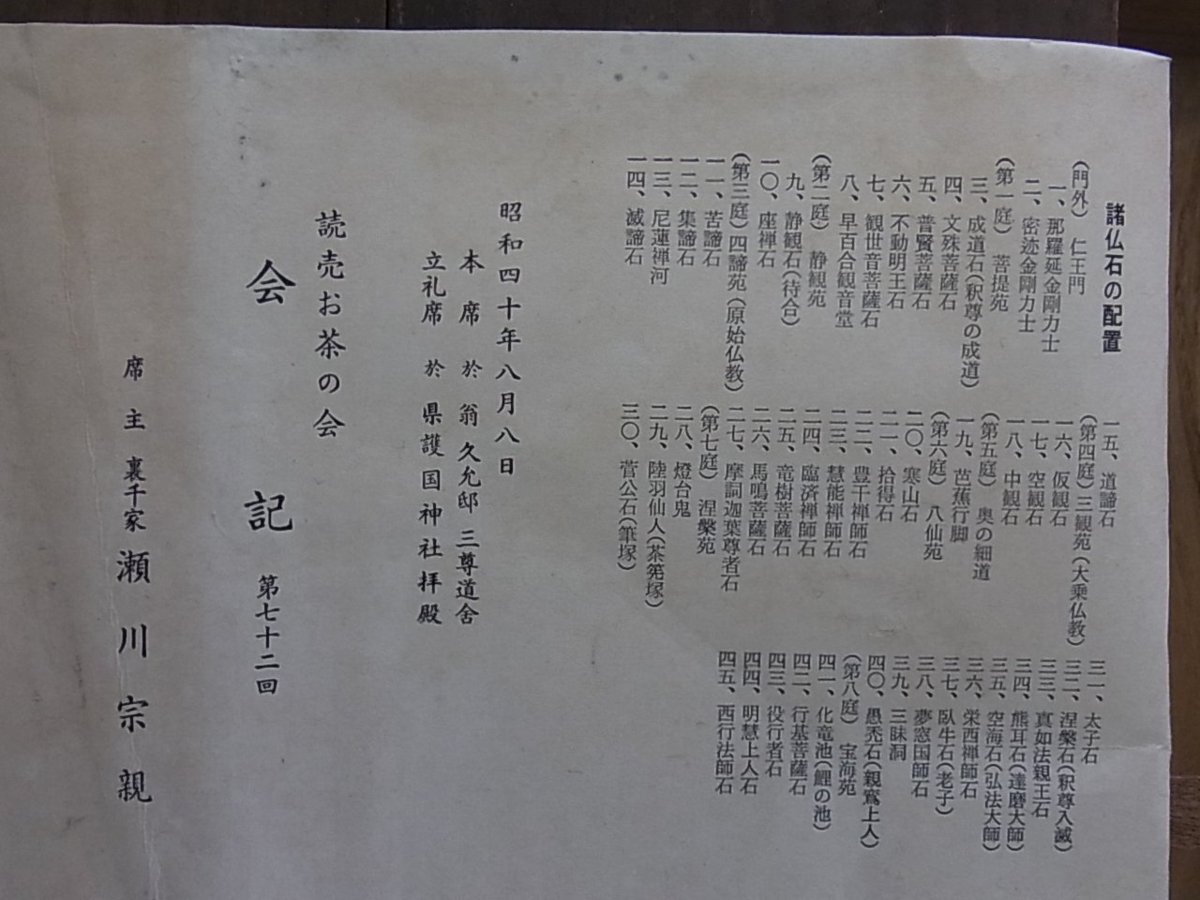 諸仏石の配置
(門外) 仁王門
一、那羅延金剛力士
二、密迹金剛力士
(第一庭) 菩提苑
三、成道石(釈尊の成道)
四、文殊菩薩石
五、普賢菩薩石
六、不動明王石
七、観世音菩薩石
八、早百合観音堂
(第二庭) 静観苑
九、静観石(待合)
一〇、座禅石
(第三庭)四諦苑(原始仏教)
一一、苦諦石
一二、集諦石
一三、尼蓮禅河
一四、滅諦石
一五、道諦石
(第四庭)三観苑(大乗仏教)
一六、仮観石
一七、空観石
一八、中観石
(第五庭) 奥の細道
一九、芭蕉行脚
(第六庭) 八仙苑
二〇、寒山石
二一、拾得石
二二、豊干禅師石
二三、慧能禅師石
二四、臨済禅師石
二五、竜樹菩薩石
二六、馬鳴菩薩石
二七、摩訶迦葉尊者石
(第七庭) 涅槃苑
二八、燈台鬼
二九、陸羽仙人(茶筅塚)
三〇、菅公石(筆塚)
三一、太子石
三二、涅槃石(釈尊入滅)
三三、真如法親王石
三四、熊耳石(達磨大師)
三五、空海石(弘法大師)
三六、栄西禅師石
三七、臥牛石(老子)
三八、夢窓国師石
三九、三昧洞
四〇、愚禿石(親鸞上人)
(第八庭) 宝海苑
四一、化竜池(鯉の池)
四二、行基菩薩石
四三、役行者石
四四、明慧上人石
四五、西行法師石
昭和四十年八月八日
本席 於 翁久允邸 三尊道舍
立礼席 於 県護国神社拝殿
読売お茶の会
会記 第七十二回
席主 裏千家 瀬川宗親